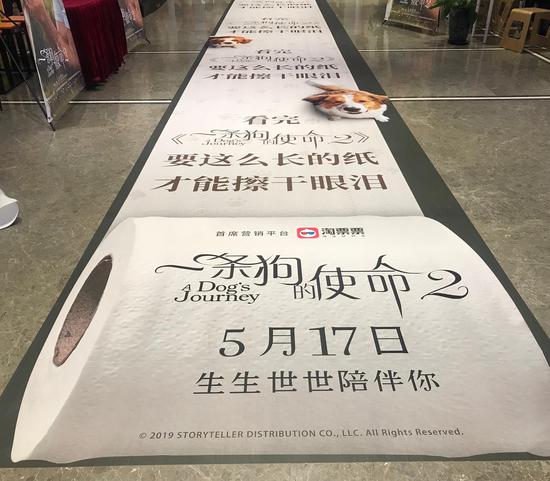 看完
才能擦干眼泪
看完
《一条狗的使命2》
要这么长的纸
才能擦干眼泪
看完
《一条狗的使命2》
A Dog's Journey
要这么长的纸
才能擦干眼泪
首席营销平台 淘票票
一条狗的使命2
A Dog's
Journey
5月17日
生生世世陪伴你
© 2019 STORYTELLER DISTRIBUTION CO., LLC. All Rights Reserved.